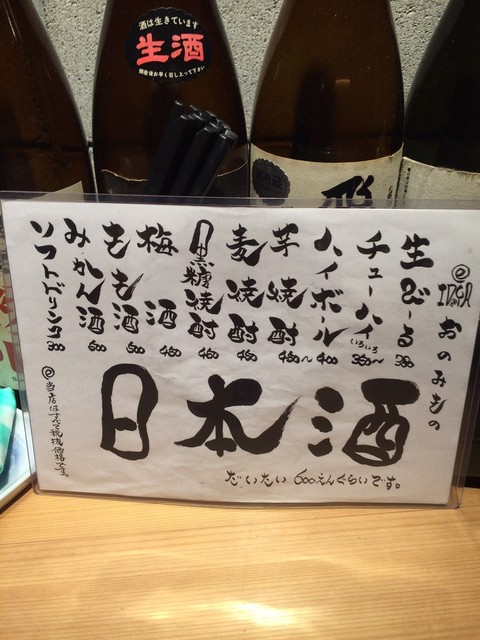 酒は生きています
生酒
開栓後お早く召し上って下さい
おのみもの
生びーる 380
チューハイ いろいろ 350〜
ハイボール 400
芋焼酎 450〜
麦焼酎 450
黒糖焼酎 450
梅酒 450
もも酒 500
みかん酒 500
ソフトドリンコ 300
日本酒
だいたい600えんぐらいです。
@当店はすべて税抜価格です。